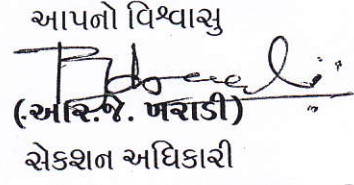 આપનો વિશ્વાસુ
(આર.જે. ખરાડી)
સેકશન અધિકારી